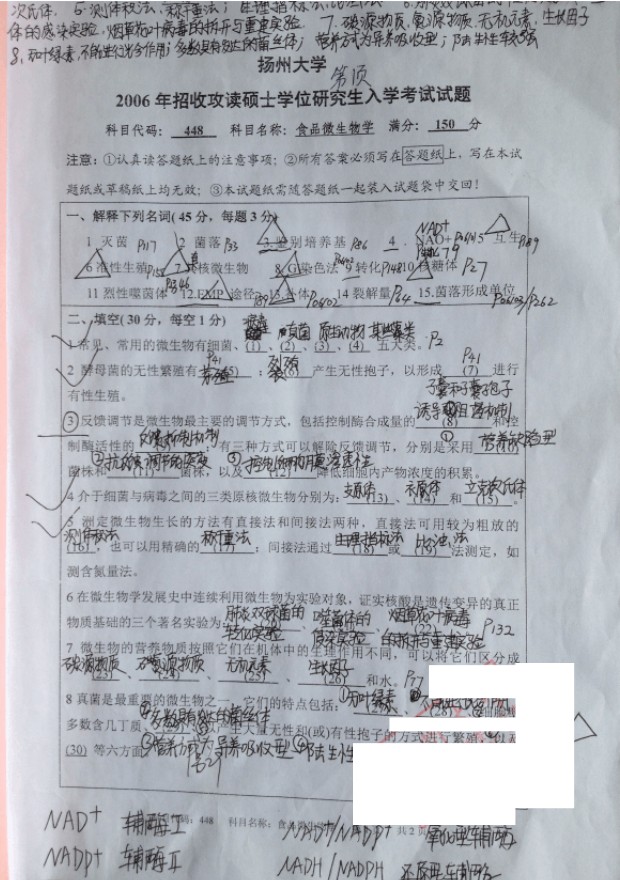 次氏体. 5.测体积法、称重法; 生理指标法
体的感染实验、烟草花叶病毒的拆开与重建实验 7. 碳源物质、氮源物质、无机元素、生长因子
8、无叶绿素,不能进行光合作用; 多数具有发达的菌丝体; 营养方式为异养吸收型; 陆生性较强
扬州大学
2006 年招收攻读硕士学位研究生入学考试试题
科目代码: 448 科目名称: 食品微生物学 满分: 150 分
注意: ①认真读答题纸上的注意事项; ②所有答案必须写在答题纸上, 写在本试
题纸或草稿纸上均无效; ③本试题纸需随答题纸一起装入试题袋中交回!
一、解释下列名词(45 分, 每题 3 分)
NAD+
1 灭菌 P117 2 菌落 P33 3.鉴别培养基 P86 4. NAO+ 5 互生
6 准性生殖 7 真核微生物 8.G染色法 9 转化 P148 10 核糖体 P27
P346
11 烈性噬菌体 12.EMP 途径 13.补体 14 裂解量 P64 15.菌落形成单位
二、填空(30 分, 每空 1 分)
病毒 真菌 原生动物 某些藻类
1 常见、常用的微生物有细菌、(1)、(2)、(3)、(4) 五大类. P2
P41 芽殖 裂殖 P41
2 酵母菌的无性繁殖有 (5) ; (6) 产生无性孢子, 以形成 (7) 进行
有性生殖。 子囊和子囊孢子
③反馈调节是微生物最主要的调节方式, 包括控制酶合成量的 (8) 和控
制酶活性的 反馈抑制机制 ; 有三种方式可以解除反馈调节, 分别是采用 ①营养缺陷型
菌株和 (11) 菌株, 以及 (12) 降低细胞内产物浓度的积累。
4 介于细菌与病毒之间的三类原核微生物分别为: 支原体(13)、衣原体(14) 和 立克次氏体(15)。
5 测定微生物生长的方法有直接法和间接法两种, 直接法可用较为粗放的
测体积法(16), 也可以用精确的 称重法(17) ; 间接法通过 生理指标法(18) 或 比浊法(19) 法测定, 如
测含氮量法。
6 在微生物学发展史中连续利用微生物为实验对象, 证实核酸是遗传变异的真正
肺炎双球菌的 噬菌体的 烟草花叶病毒
物质基础的三个著名实验为: 转化实验、感染实验、的拆开与重建实验 P132
7 微生物的营养物质按照它们在机体中的生理作用不同, 可以将它们区分成
碳源物质(23)、氮源物质(24)、无机元素(25)、生长因子(26) 和水. P77
8 真菌是最重要的微生物之一, 它们的特点包括: ①无叶绿素、(28)
多数含几丁质、(29)、以产生大量无性和(或)有性孢子的方式进行繁殖,
(30) 等六方面 ③营养方式为异养吸收型 ④陆生性
NAD+ 辅酶I 448 科目名称: 食品微生物学 NAD+/NADP+ 共 2 页 氧化型辅酶
NADP+ 辅酶II NADH / NADPH 还原型辅酶